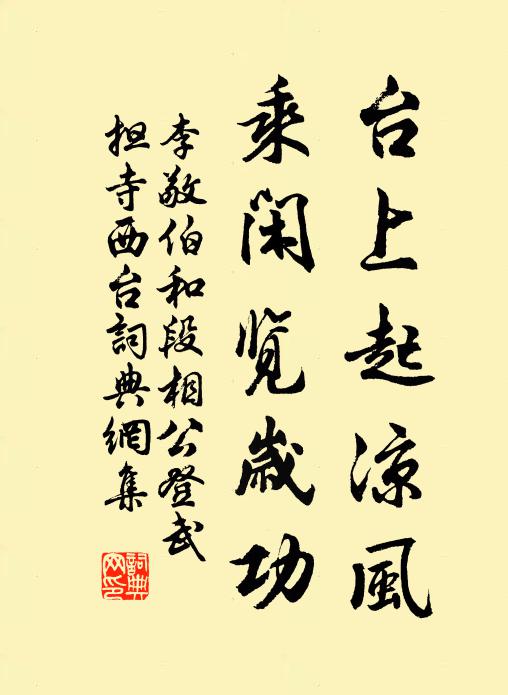 台上起凉風
乘閑覽歲功
李敬伯和段相公登武
担寺西台詞典網集
詞典
网印